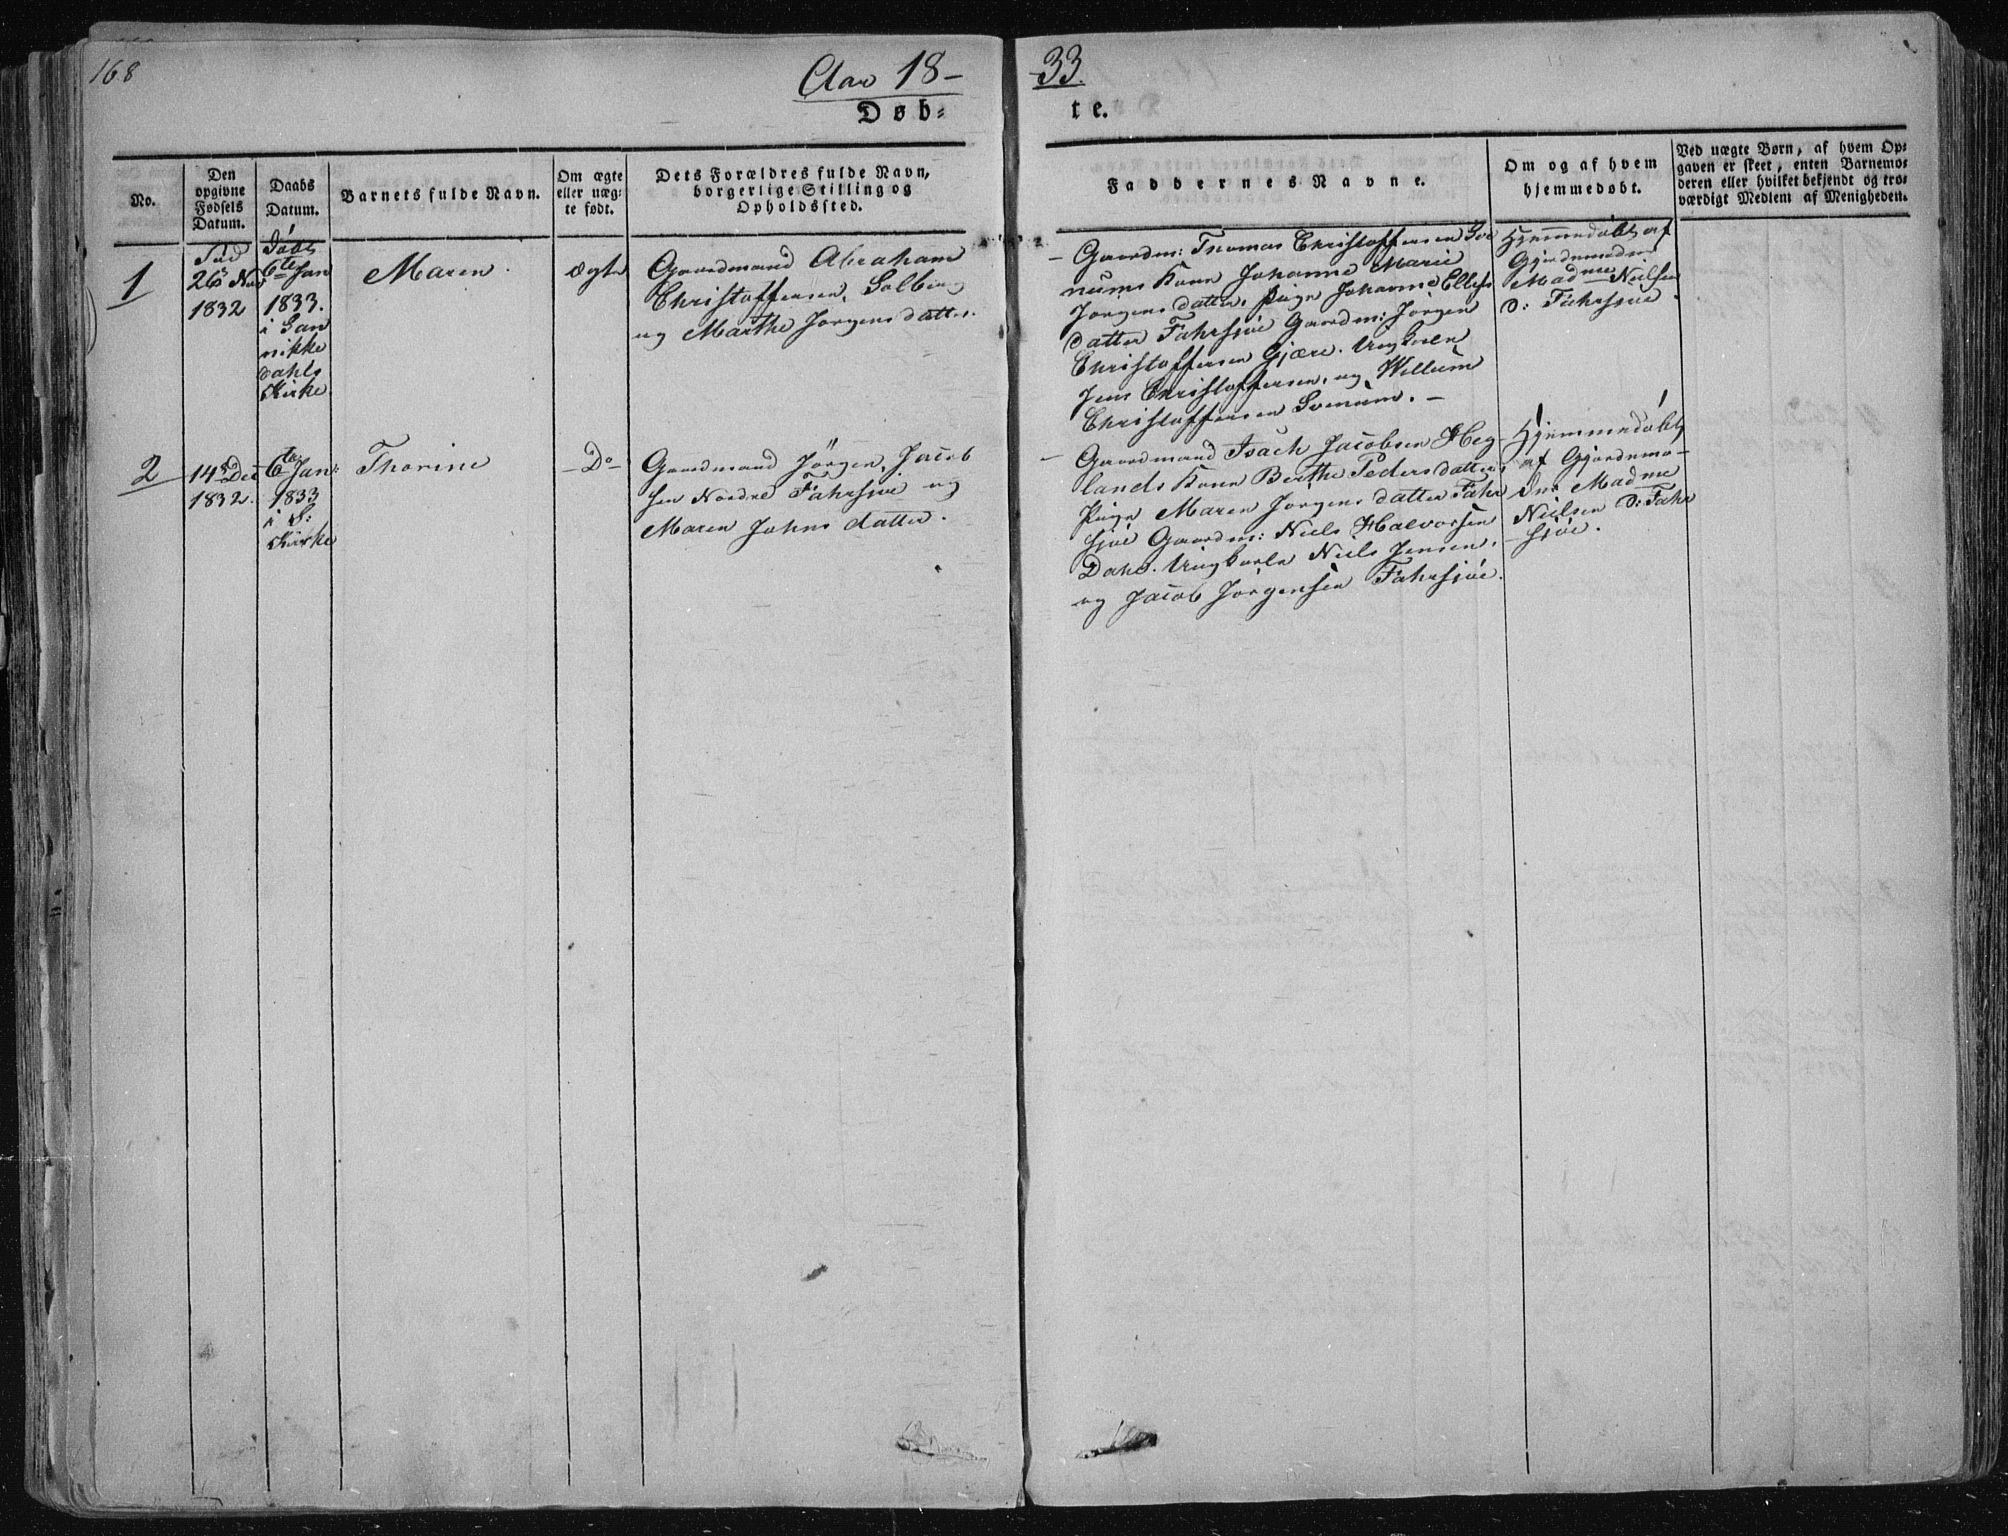 168
Aar 18-
-33.
Døb-
te.
No.
Den opgivne Fødsels Datum.
Daabs Datum.
Barnets fulde Navn.
Om ægte eller uæg-
te født.
Dets Forældres fulde Navn,
borgerlige Stilling og
Opholdssted.
Faddernes Navne.
Om og af hvem
hjemmedøbt.
Ved uægte Børn, af hvem Op-
gaven er skeet, enten Barnemo-
deren eller hvilket bekjendt og tro-
værdigt Medlem af Menigheden.
1
26 Nov
1832
Døbt
6te Jan
1833.
i San
nikke
dahls
Kirke
Maren.
ægte
Gaardmand Abraham
Christoffersen, Solberg
og Marthe Jørgensdatter.
- Gaardm: Thomas Christoffersen Sve
nums Kone Johanne Marie
Jørgensdatter, Pige Johanne Ellefs
datter Fahrsjøe Gaardm: Jørgen
Christoffersen Gjære. Ungkarle
Jens Christoffersen, og Willum
Christoffersen Svenum. -
Hjemmedøbt af
Gjordemodr
Madme Nielsen
D: Fahrsjøe.
2
14 Dec
1832.
6te Jan:
1833
i S:
Kirke
Thorine
- Do -
Gaardmand Jørgen Jacob
sen Nordre Fahrsjøe og
Maren Johnsdatter.
- Gaardmand Isach Jacobsen Heg-
lands Kone Berthe Pedersdatter,
Pige Maren Jørgensdatter Fahr
sjøe Gaardm: Niels Halvorsen
Dahl. Ungkarle Niels Jensen,
og Jacob Jørgensen Fahrsjøe.
Hjemmedøbt
af Gjordemo-
dr: Madme
Nielsen D: Fahr
-sjøe.